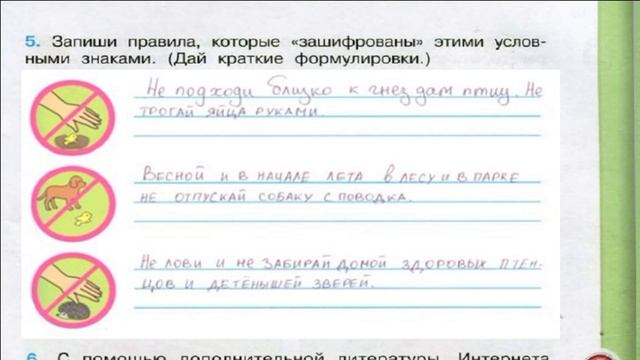 5. Запиши правила, которые «зашифрованы» этими услов-
ными знаками. (Дай краткие формулировки.)
Не подходи близко к гнездам птиц. Не
трогай яйца руками.
Весной и в начале лета в лесу и в парке
не отпускай собаку с поводка.
Не лови и не забирай домой здоровых птен-
цов и детёнышей зверей.
6. С помощью дополнительной литературы, Интернета